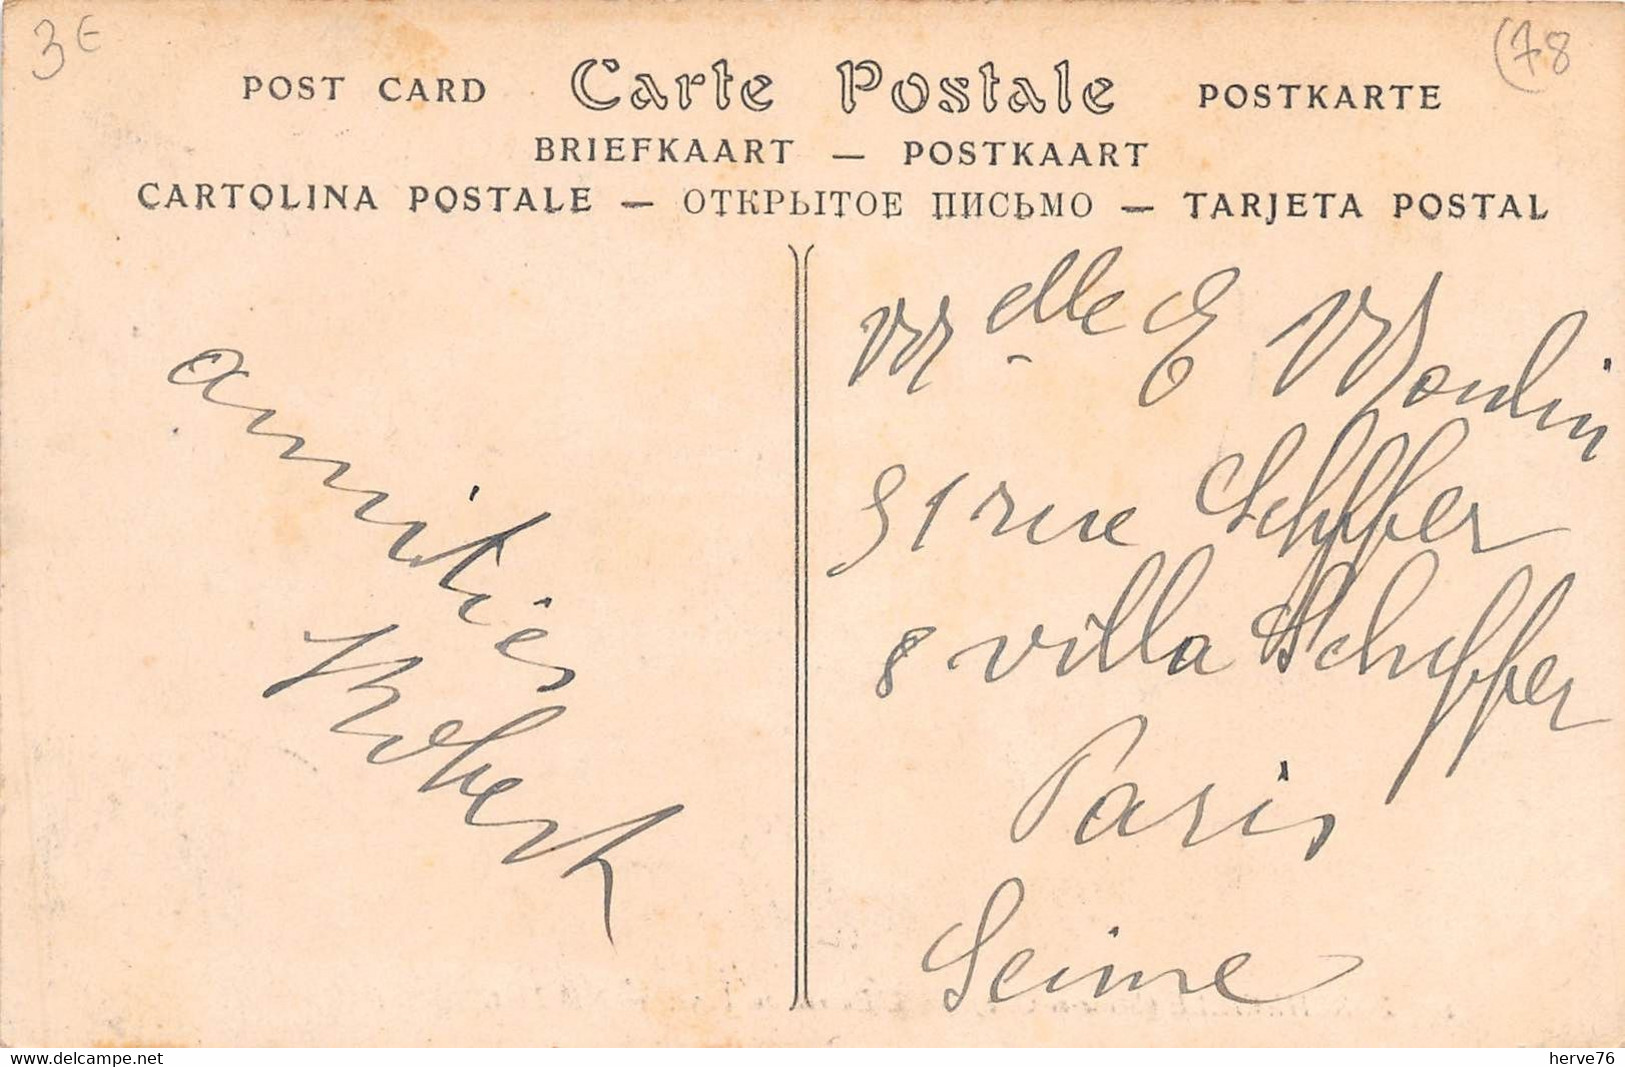 3€
(78
POST CARD Carte Postale POSTKARTE
BRIEFKAART — POSTKAART
CARTOLINA POSTALE — ОТКРЫТОЕ ПИСЬМО — TARJETA POSTAL
amitiés
Robert
Melle E Moulin
51 rue Scheffer
8 villa Scheffer
Paris
Seine
www.delcampe.net
herve76